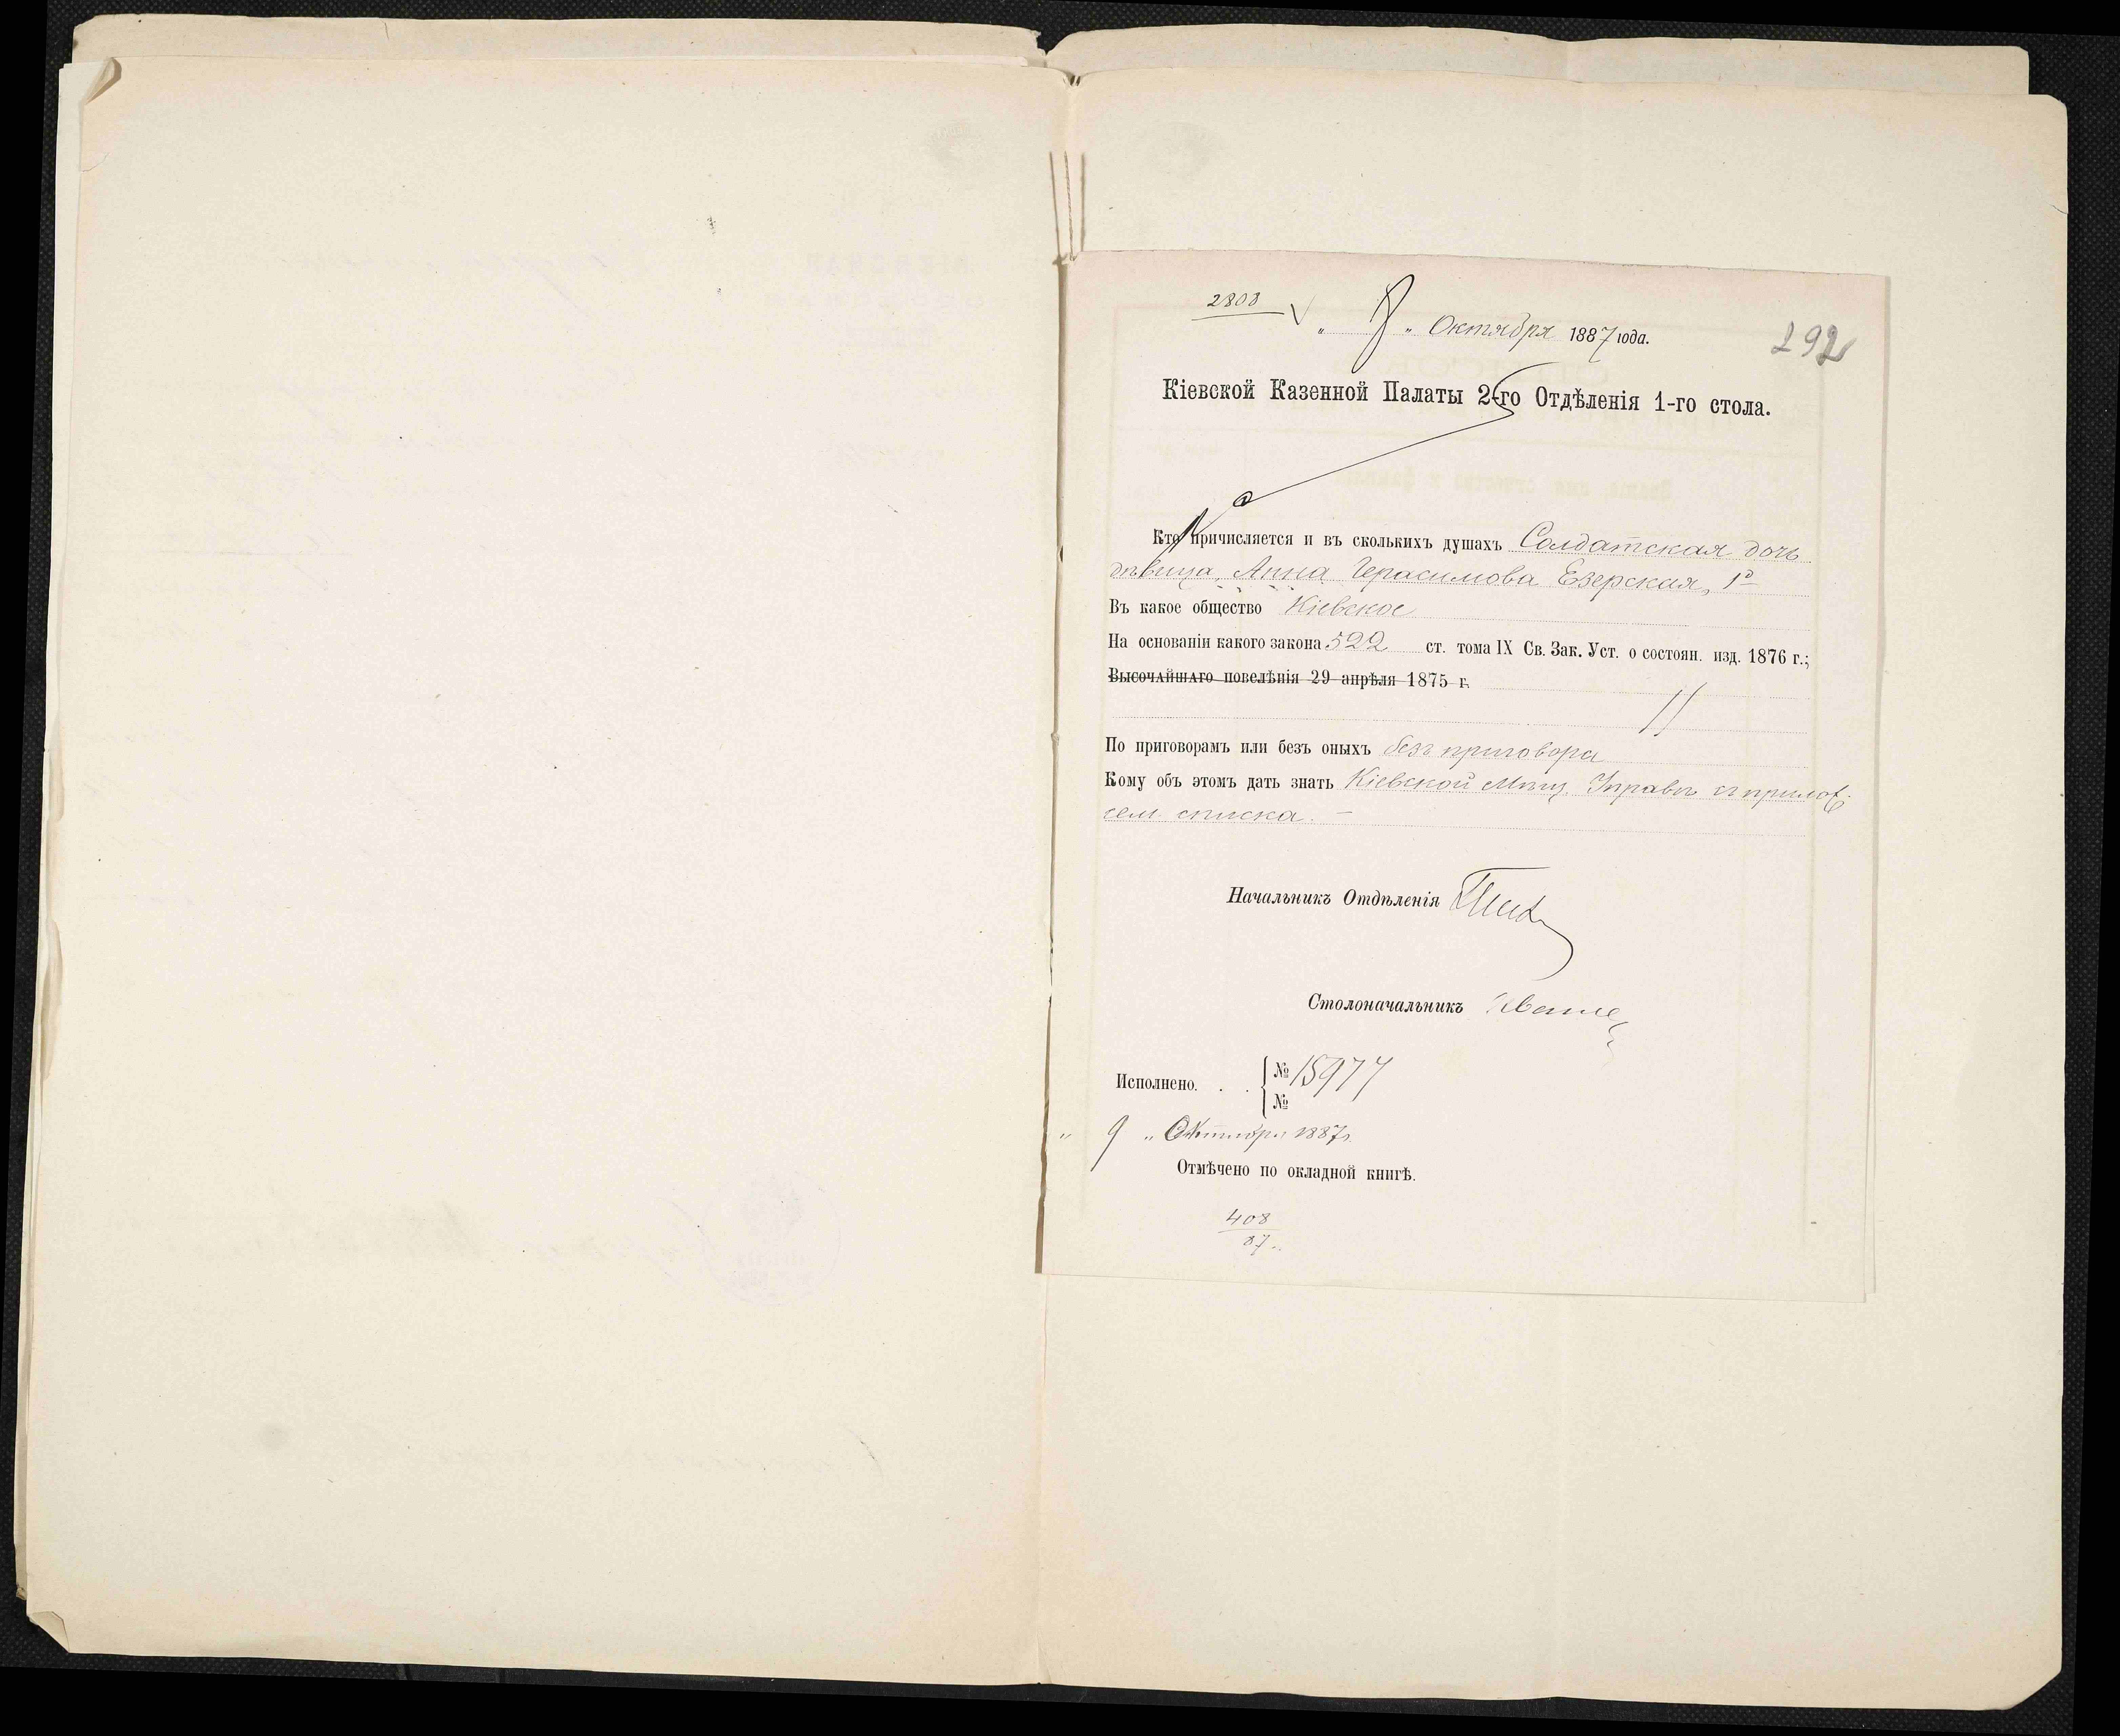 2808
„ 8 „ Октября 1887 года.
292
Кіевской Казенной Палаты 2-го Отдѣленія 1-го стола.
Кто причисляется и въ сколькихъ душахъ Солдатская дочь
дѣвица, Анна Герасимова Езерская, 1 д
Въ какое общество Кіевское
На основаніи какого закона 522 ст. тома IX Св. Зак. Уст. о состоян. изд. 1876 г.;
Высочайшаго повелѣнія 29 апрѣля 1875 г.
По приговорамъ или безъ оныхъ безъ приговора
Кому объ этомъ дать знать Кіевской Мѣщ. Управѣ съ прилож.
сем. списка. –
Начальникъ Отдѣленія
Столоначальникъ
Исполнено. . . № 15977
№
„ 9 „ Октября 1887 г.
Отмѣчено по окладной книгѣ.
408
87.